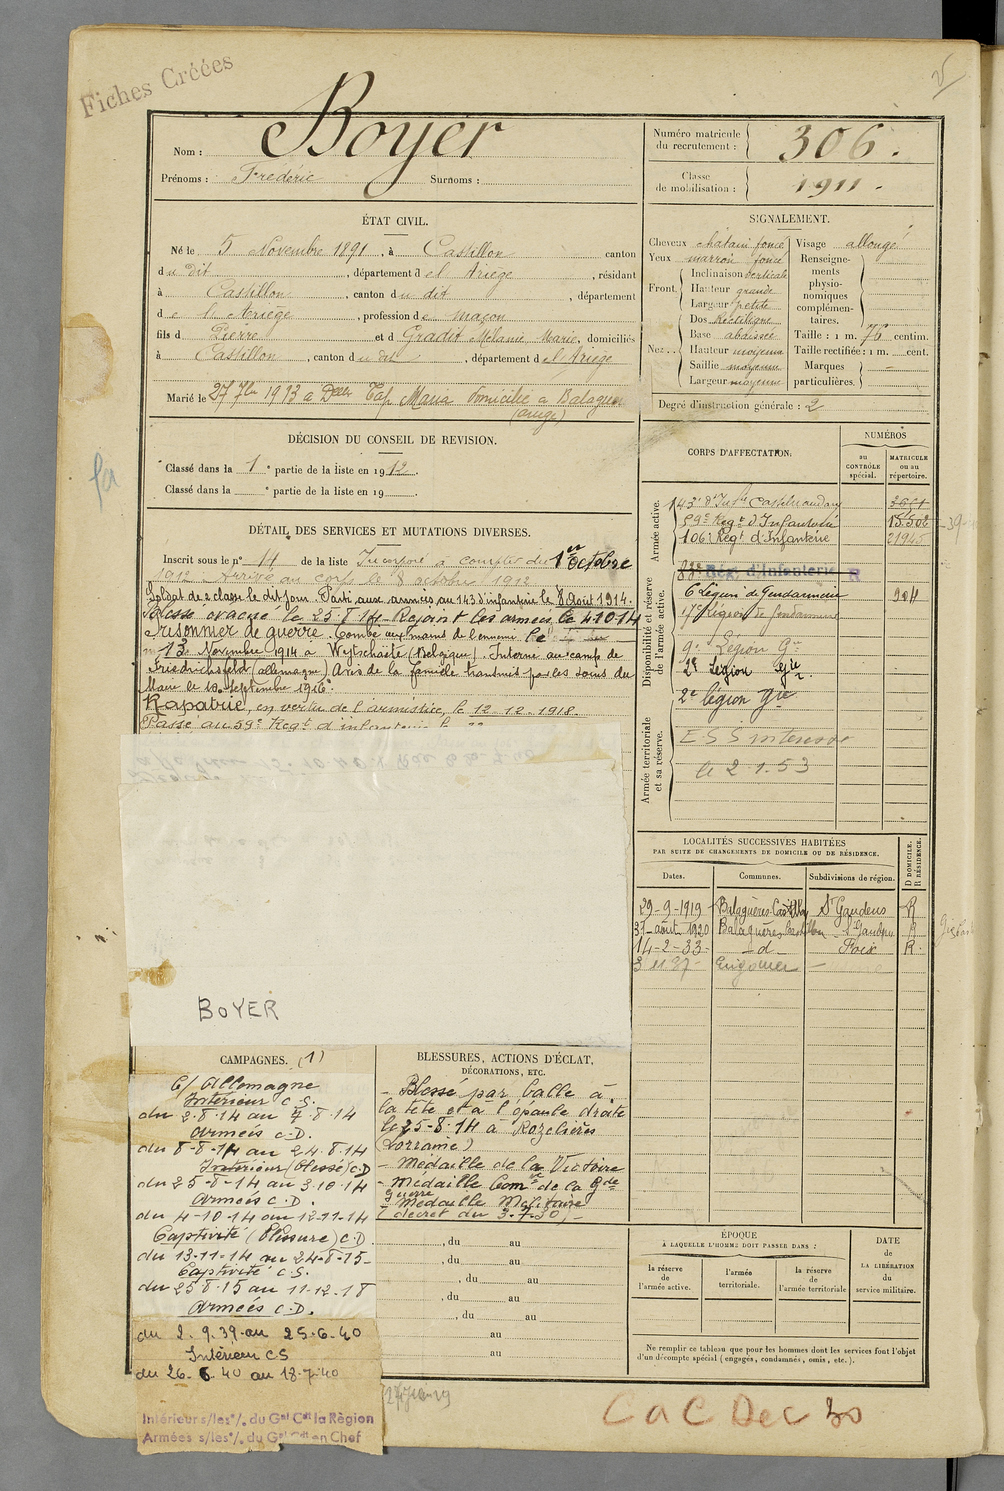 Fiches Créées
Nom : Boyer
Prénoms : Frédéric Surnoms :
Numéro matricule du recrutement : 306.
Classe de mobilisation : 1911.
ÉTAT CIVIL.
Né le 5 Novembre 1891, à Castillon canton
du dit, département d el Ariège, résidant
à Castillon, canton du dit, département
de l'Ariège, profession de maçon
fils d Pierre et d Gradit Mélanie Marie, domiciliés
à Castillon, canton du dit, département d el Ariège
Marié le 27 7bre 1913 a Delle Tap Maria domicilié a Balaguères
(ariège)
SIGNALEMENT.
Cheveux châtain foncé
Yeux marron foncé
Front. Inclinaison verticale
Hauteur grande
Largeur petite
Nez.. Dos Rectiligne
Base abaissée
Hauteur moyenne
Saillie moyenne
Largeur moyenne
Visage allongé
Renseignements physionomiques complémentaires.
Taille : 1 m. 76 centim.
Taille rectifiée : 1 m. cent.
Marques particulières. -
Degré d'instruction générale : 2
DÉCISION DU CONSEIL DE REVISION.
Classé dans la 1e partie de la liste en 1912.
Classé dans la e partie de la liste en 19 .
DÉTAIL DES SERVICES ET MUTATIONS DIVERSES.
Inscrit sous le n° 14 de la liste Incorporé à compter du 1er Octobre
1912. Arrivé au corps le 8 octobre 1912
Soldat de 2e classe le dit jour. Parti aux armées au 143 d'infanterie le 8 Août 1914.
Blessé évacué le 25-8-14 - Rejoint les armées le 4-10-14
Prisonnier de guerre. Tombé aux mains de l'ennemi le
13 Novembre 1914 à Wytschaëte (Belgique). Interné au camp de
Friedrichsfeld (allemagne) Avis de la famille transmis par les soins du
Maire le 10 Septembre 1916.
Rapatrié, en vertu de l'armistice, le 12-12-1918.
Passé au 59e Regt d'infanterie le
BOYER
CORPS D'AFFECTATION.
NUMÉROS
au CONTRÔLE spécial.
MATRICULE ou au répertoire.
Armée active.
143e d'Infie Castelnaudary 3651
59e Regt d'Infanterie 15.502
106e Regt d'Infanterie 21945
Disponibilité et réserve de l'armée active.
83e Rég. d'Infanterie R
6 Légion de Gendarmerie 204
17e Légion de Gendarmerie
9e Légion Gie
2e Légion Gie
2e légion Gie
Armée territoriale et sa réserve.
le 2.1.53
LOCALITÉS SUCCESSIVES HABITÉES
PAR SUITE DE CHANGEMENTS DE DOMICILE OU DE RÉSIDENCE.
Dates. Communes. Subdivisions de région. D DOMICILE. R RÉSIDENCE.
29-9-1919 Balaguères Castillon St Gaudens R
31-août 1920 Balaguères Castillon St Gaudens R
14-2-33- -d- Foix R.
3 11 37- Engomer -
CAMPAGNES. (1)
C/ Allemagne
Intérieur C.S.
du 2.8.14 au 7.8.14
Armées C.D.
du 8-8-14 au 24.8.14
Intérieur (blessé) C.D
du 25-8-14 au 3.10.14
Armées C.D.
du 4-10-14 au 12-11-14
Captivité (blessure) C.D.
du 13-11-14 au 24-8-15-
Captivité C.S.
du 25 8.15 au 11-12-18
Armées C.D.
du 2.9.39 au 25-6-40
Intérieur C.S
du 26-6 40 au 18-7-40
Intérieur s/les o/. du Gal Cdt la Région
Armées s/les o/. du Gal Cdt en Chef
BLESSURES, ACTIONS D'ÉCLAT,
DÉCORATIONS, ETC.
- Blessé par balle à
la tête et à l'épaule droite
le 25-8-14 à Rozelières
(Lorraine)
- Médaille de la Victoire
- Médaille Comve de la Gde
Guerre
- Médaille Militaire
(décret du 3-7-30) -
, du au
, du au
, du au
, du au
, du au
au
au
ÉPOQUE
À LAQUELLE L'HOMME DOIT PASSER DANS :
la réserve de l'armée active.
l'armée territoriale.
la réserve de l'armée territoriale
DATE de LA LIBÉRATION du service militaire.
Ne remplir ce tableau que pour les hommes dont les services font l'objet
d'un décompte spécial (engagés, condamnés, omis, etc.).
CaC Dec 30